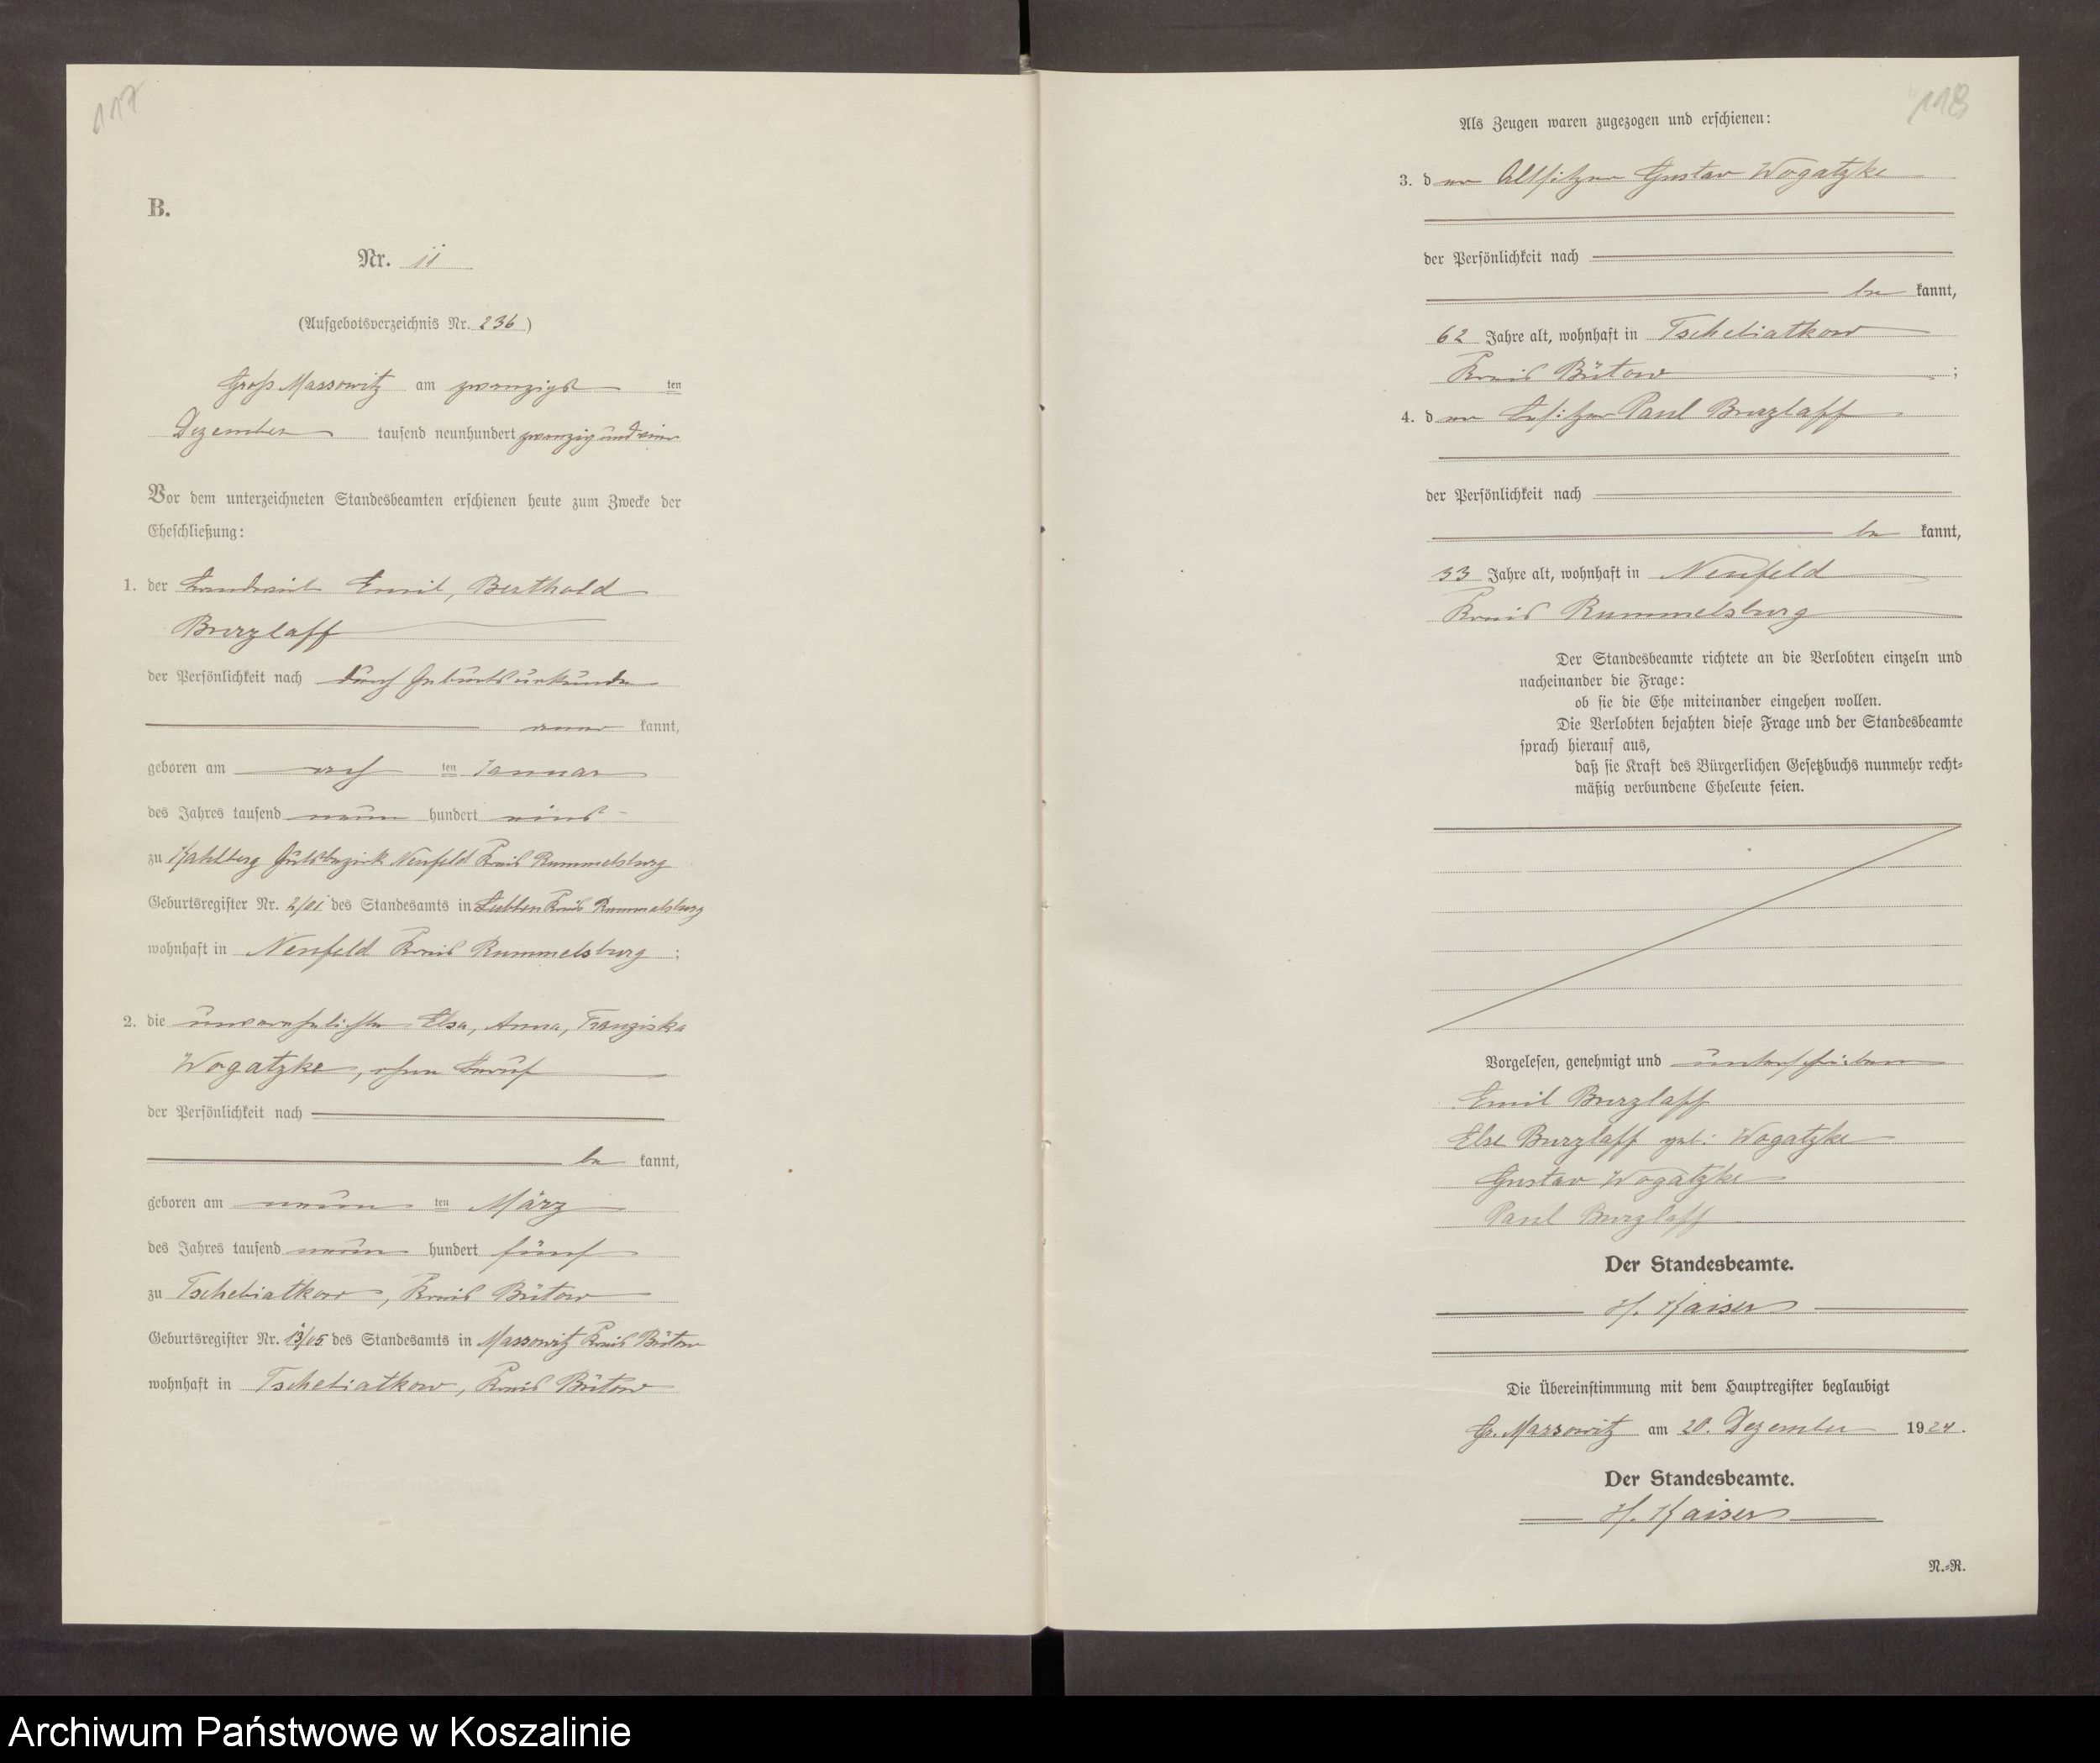 117
B.
Nr. 11
(Aufgebotsverzeichnis Nr. 236)
Groß Massowitz am zwanzigsten
Dezember tausend neunhundert zwanzig und vier
Vor dem unterzeichneten Standesbeamten erschienen heute zum Zwecke der
Eheschließung:
1. der Landwirt Emil, Berthold
Burzlaff
der Persönlichkeit nach durch Geburtsurkunde
aner kannt,
geboren am ach ten Januar
des Jahres tausend neun hundert eins
zu Kahlberg Gutsbezirk Neufeld Kreis Rummelsburg
Geburtsregister Nr. 2/01 des Standesamts in Lubben Kreis Rummelsburg
wohnhaft in Neufeld Kreis Rummelsburg ;
2. die unverehelichte Elsa, Anna, Franziska
Wogatzke, ohne Beruf
der Persönlichkeit nach
be kannt,
geboren am neun ten März
des Jahres tausend neun hundert fünf
zu Tschebiatkow, Kreis Bütow
Geburtsregister Nr. 13/05 des Standesamts in Massowitz Kreis Bütow
wohnhaft in Tschebiatkow, Kreis Bütow
118
Als Zeugen waren zugezogen und erschienen:
3. der Altsitzer Gustav Wogatzke
der Persönlichkeit nach
be kannt,
62 Jahre alt, wohnhaft in Tschebiatkow
Kreis Bütow ;
4. der Besitzer Paul Burzlaff
der Persönlichkeit nach
be kannt,
33 Jahre alt, wohnhaft in Neufeld
Kreis Rummelsburg
Der Standesbeamte richtete an die Verlobten einzeln und
nacheinander die Frage:
ob sie die Ehe miteinander eingehen wollen.
Die Verlobten bejahten diese Frage und der Standesbeamte
sprach hierauf aus,
daß sie Kraft des Bürgerlichen Gesetzbuchs nunmehr recht-
mäßig verbundene Eheleute seien.
Vorgelesen, genehmigt und unterschrieben
Emil Burzlaff
Else Burzlaff geb: Wogatzke
Gustav Wogatzke
Paul Burzlaff
Der Standesbeamte.
H. Kaiser
Die Übereinstimmung mit dem Hauptregister beglaubigt
Gr. Massowitz am 20. Dezember 1924.
Der Standesbeamte.
H. Kaiser
N.-R.
Archiwum Państwowe w Koszalinie